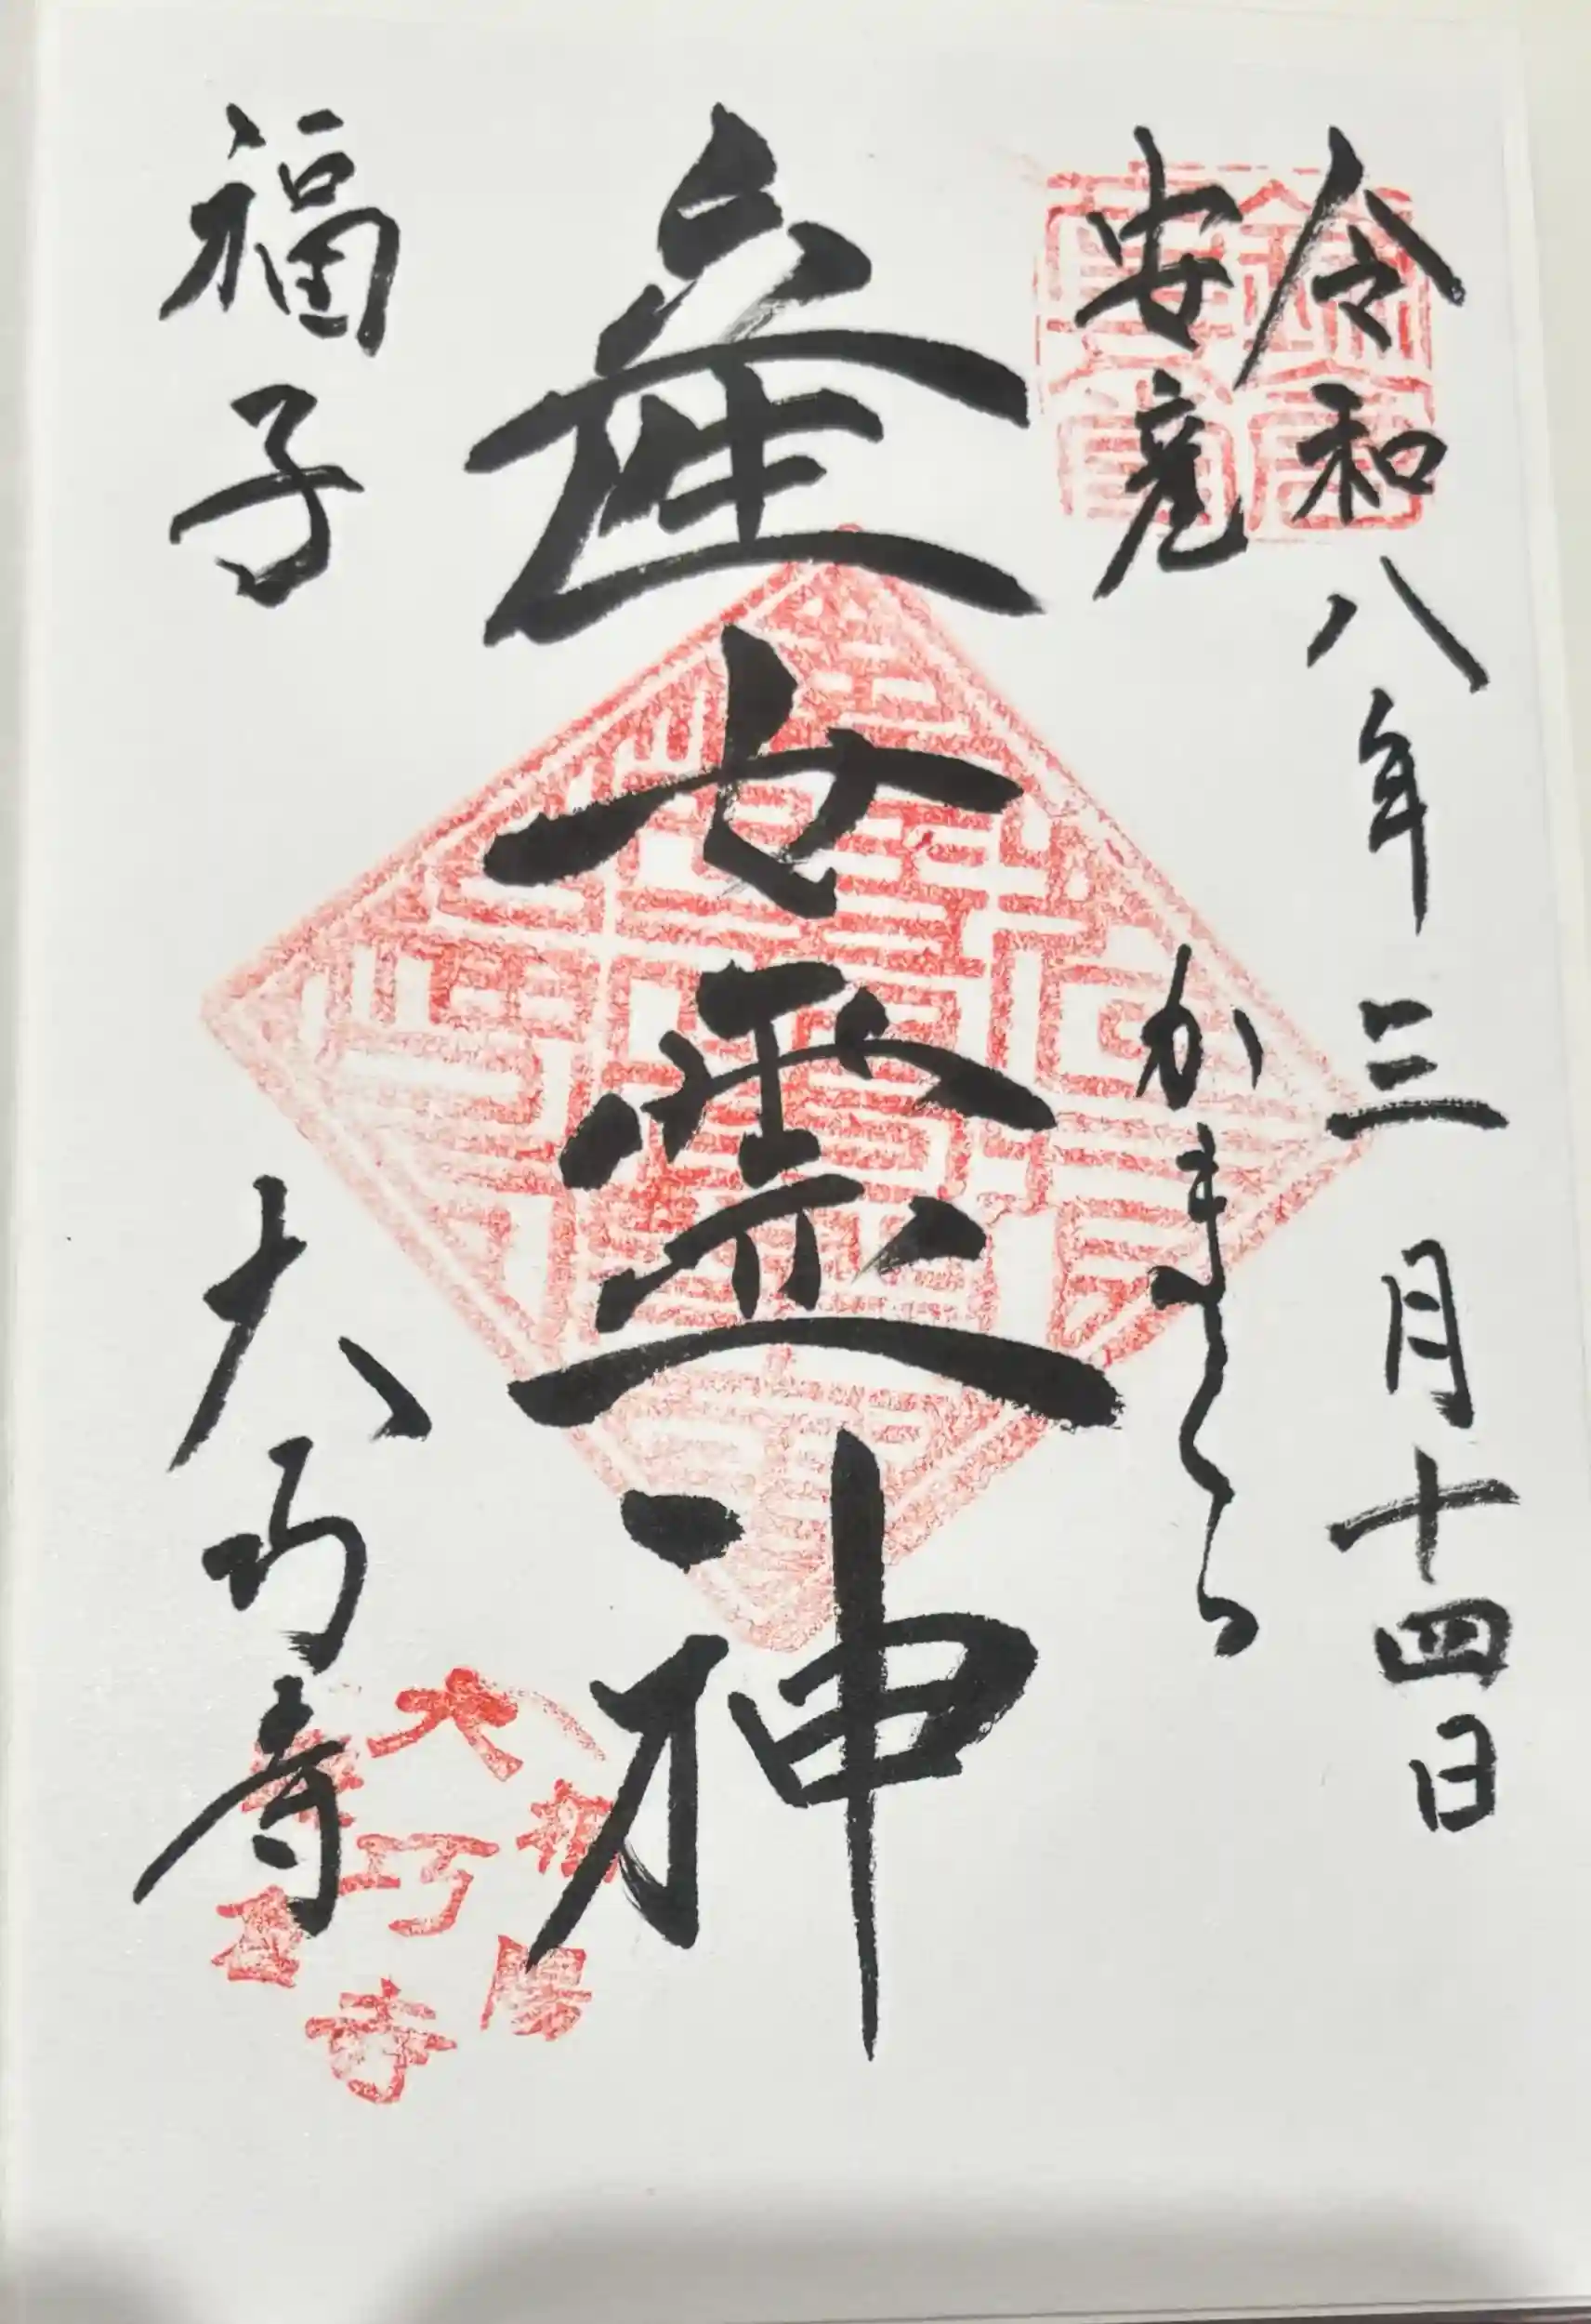 令和八年三月十四日
安産 かまくら
産女霊神
福子 大巧寺
相陽
大巧寺